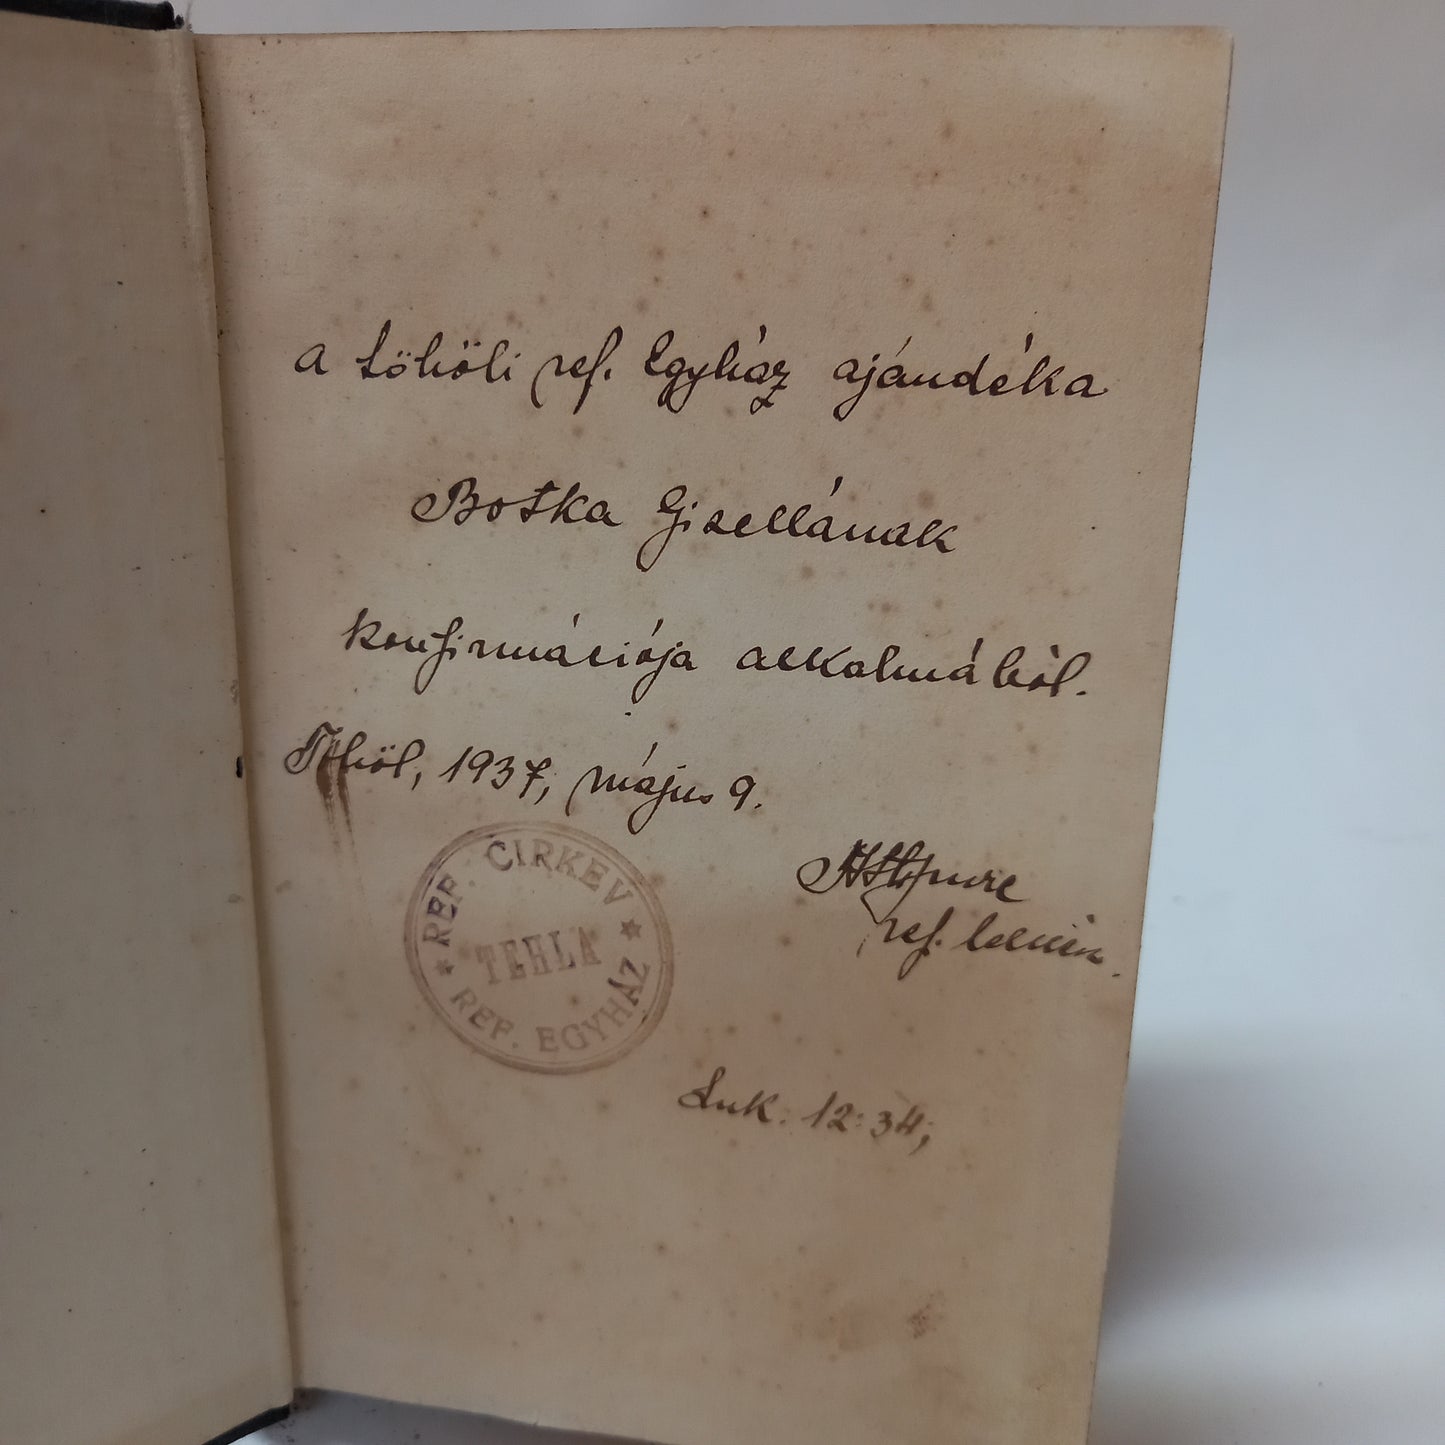 a töhöli ref. Egyház ajándéka
Botka Gisellának
konfirmációja alkalmából.
Töhöl, 1937, május 9.
Imre
ref. lelkész.
REF. CIRKEV
TEHLA
REF. EGYHÁZ
Luk. 12:34;